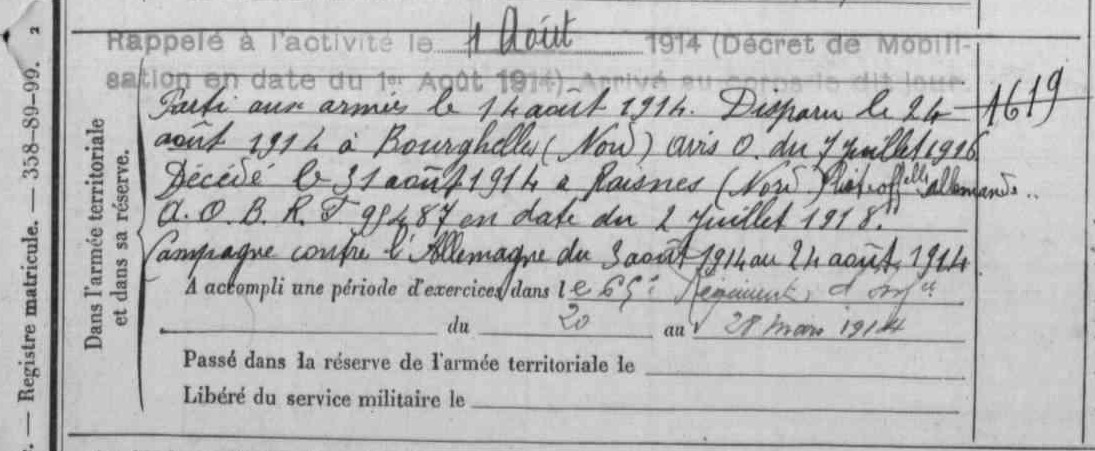 Rappelé à l'activité le 1 Août 1914 (Décret de Mobili-
sation en date du 1er Août 1914) Arrivé au corps le dit jour.
Parti aux armées le 14 août 1914. Disparu le 24
août 1914 à Bourghelles (Nord) avis O. du 7 juillet 1916
Décédé le 31 août 1914 à Raismes (Nord) liste off elle allemande
A.O.B.R.T 95487 en date du 2 juillet 1918.
Campagne contre l'Allemagne du 3 août 1914 au 24 août 1914
A accompli une période d'exercices dans le 65e Régiment d'Infie
du 20 au 28 mars 1914
Passé dans la réserve de l'armée territoriale le
Libéré du service militaire le
1619
Dans l'armée territoriale
et dans sa réserve.
— Registre matricule. — 358-89-99. 2